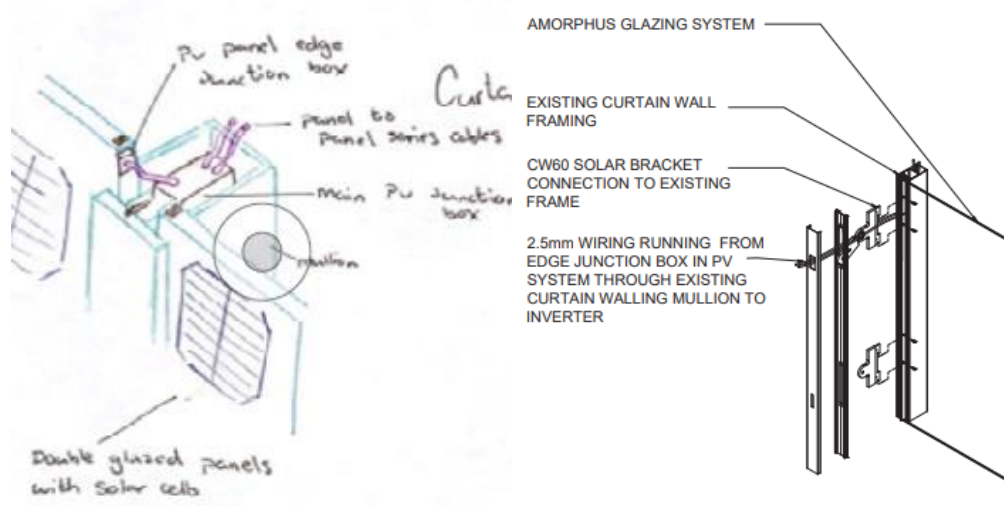 Pv panel edge
Junction box
Curta
panel to
panel series cables
main Pv Junction
box
mullion
Double glazed panels
with Solar cells
AMORPHUS GLAZING SYSTEM
EXISTING CURTAIN WALL
FRAMING
CW60 SOLAR BRACKET
CONNECTION TO EXISTING
FRAME
2.5mm WIRING RUNNING FROM
EDGE JUNCTION BOX IN PV
SYSTEM THROUGH EXISTING
CURTAIN WALLING MULLION TO
INVERTER